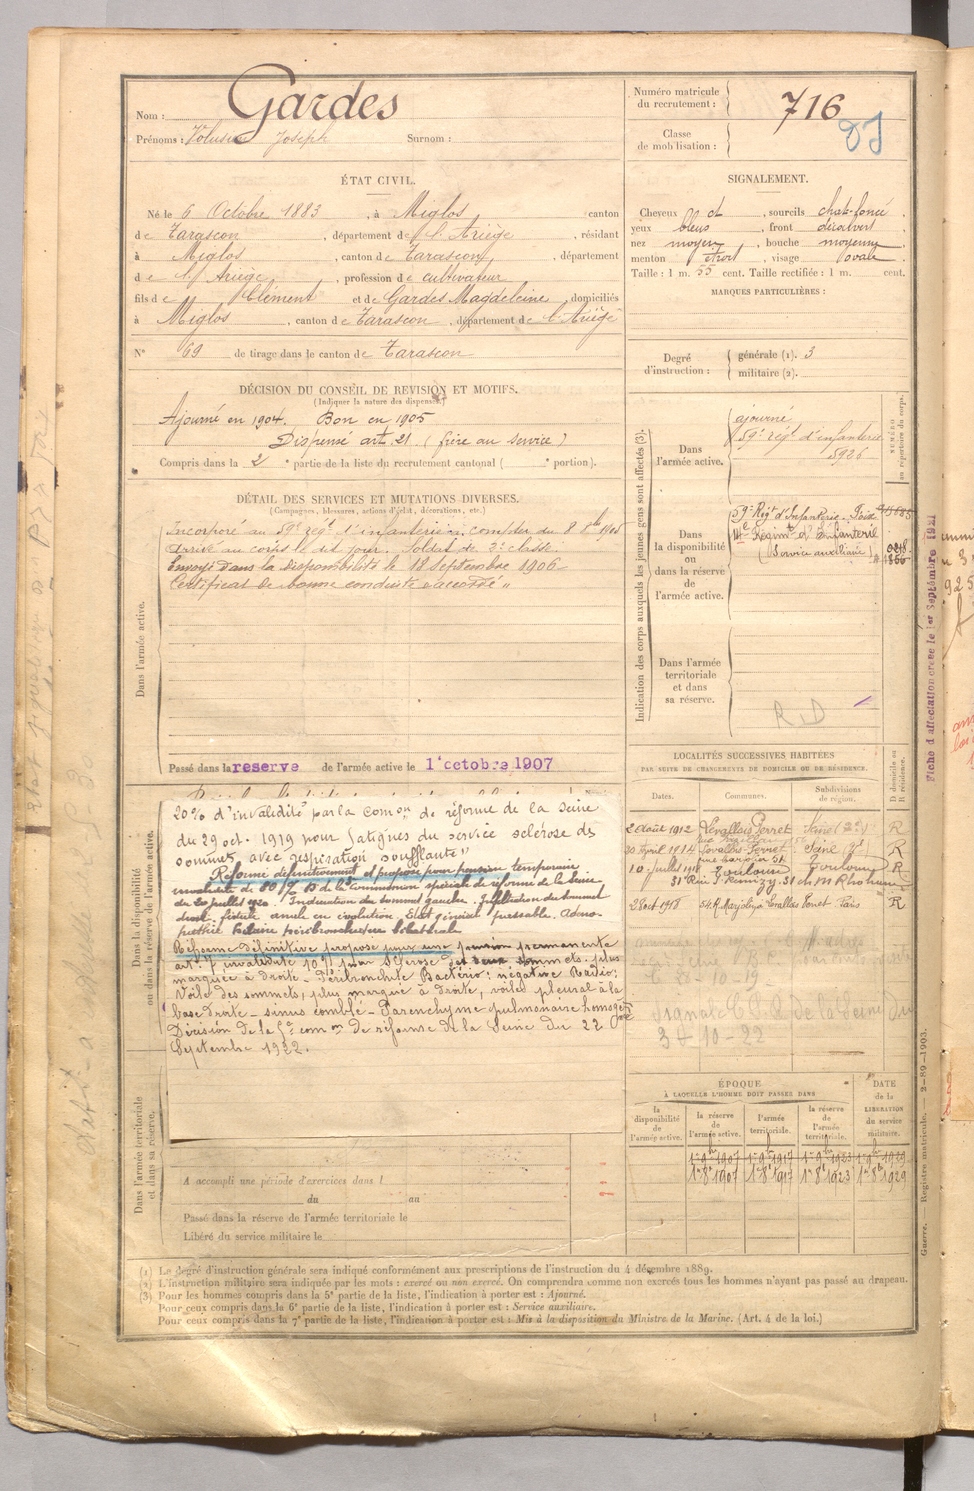 Nom : Gardes
Prénoms : Volusien Joseph Surnom :
Numéro matricule du recrutement : 716
Classe de mobilisation :
ÉTAT CIVIL.
Né le 6 Octobre 1883, à Miglos canton
de Tarascon, département de l'Ariège, résidant
à Miglos, canton de Tarascon, département
de l'Ariège, profession de cultivateur
fils de Clément et de Gardes Magdeleine, domiciliés
à Miglos, canton de Tarascon, département de l'Ariège
N° 69 de tirage dans le canton de Tarascon
SIGNALEMENT.
Cheveux ct, sourcils chat. foncé,
yeux bleus, front découvert,
nez moyen, bouche moyenne,
menton étroit, visage ovale.
Taille : 1 m. 55 cent. Taille rectifiée : 1 m. cent.
MARQUES PARTICULIÈRES :
Degré d'instruction : générale (1). 3
militaire (2).
DÉCISION DU CONSEIL DE REVISION ET MOTIFS.
(Indiquer la nature des dispenses.)
Ajourné en 1904. Bon en 1905
Dispensé art. 21 (frère au service)
Compris dans la 2e partie de la liste du recrutement cantonal ( e portion).
DÉTAIL DES SERVICES ET MUTATIONS DIVERSES.
(Campagnes, blessures, actions d'éclat, décorations, etc.)
Incorporé au 59e régt d'infanterie à compter du 8 8bre 1905
Arrivé au corps le dit jour. Soldat de 2e classe.
Envoyé dans la disponibilité le 18 septembre 1906
Certificat de bonne conduite "accordé"
Dans l'armée active.
Passé dans la reserve de l'armée active le 1er octobre 1907
Indication des corps auxquels les jeunes gens sont affectés (3).
NUMÉRO au répertoire du corps.
Dans l'armée active.
ajourné
59e régt d'infanterie
5926
Dans la disponibilité ou dans la réserve de l'armée active.
59e Régt d'Infanterie. Foix
Régiment d'Infanterie
(Service auxiliaire)
Dans l'armée territoriale et dans sa réserve.
R.D
Dans la disponibilité ou dans la réserve de l'armée active.
20% d'invalidité par la Comon de réforme de la Seine
du 29 oct. 1919 pour fatigues du service sclérose des
sommets avec respiration soufflante"
Réforme définitivement et proposé pour pension temporaire
invalidité de 80% de la Commission spéciale de réforme de la Seine
du 20 juillet 1920. Induration du sommet gauche. Infiltration du sommet
droit, fistule anale en évolution. Etat général passable. Adéno-
pathie hilaire péribronchique bilatérale
Réforme définitive proposé pour une pension permanente
art. 7 invalidité 10% pour Sclérose des deux sommets, plus
marquée à droite - Péribronchite Bactério: négative Radio:
Voile des sommets, plus marqué à droite, voile pleural à la
base droite - sinus comblé - Parenchyme pulmonaire homogène
Décision de la comon de réforme de la Seine du 22
Septembre 1922.
LOCALITÉS SUCCESSIVES HABITÉES
PAR SUITE DE CHANGEMENTS DE DOMICILE OU DE RÉSIDENCE.
Dates. Communes. Subdivisions de région. D domicile ou R résidence.
2 Août 1912 Levallois Perret Seine (2e) R
30 Avril 1914 Levallois-Perret Seine R
10 juillet 1918 Toulouse Toulouse R
2 8 oct 1918 Perret Paris R
Signalé C.S.R. de la Seine du
ÉPOQUE
À LAQUELLE L'HOMME DOIT PASSER DANS
la disponibilité de l'armée active. la réserve de l'armée active. l'armée territoriale. la réserve de l'armée territoriale. DATE de la LIBÉRATION du service militaire.
1er 9bre 1907 1er 9bre 1917 1er 9bre 1923 1er 9bre 1929
1er 8bre 1907 1er 8bre 1917 1er 8bre 1923 1er 8bre 1929
Dans l'armée territoriale et dans sa réserve.
A accompli une période d'exercices dans l
du au
Passé dans la réserve de l'armée territoriale le
Libéré du service militaire le
(1) Le degré d'instruction générale sera indiqué conformément aux prescriptions de l'instruction du 4 décembre 1889.
(2) L'instruction militaire sera indiquée par les mots : exercé ou non exercé. On comprendra comme non exercés tous les hommes n'ayant pas passé au drapeau.
(3) Pour les hommes compris dans la 5e partie de la liste, l'indication à porter est : Ajourné.
Pour ceux compris dans la 6e partie de la liste, l'indication à porter est : Service auxiliaire.
Pour ceux compris dans la 7e partie de la liste, l'indication à porter est : Mis à la disposition du Ministre de la Marine. (Art. 4 de la loi.)
Guerre. — Registre matricule. — 2-89-1903.
Fiche d'affectation créée le 1er Septembre 1921